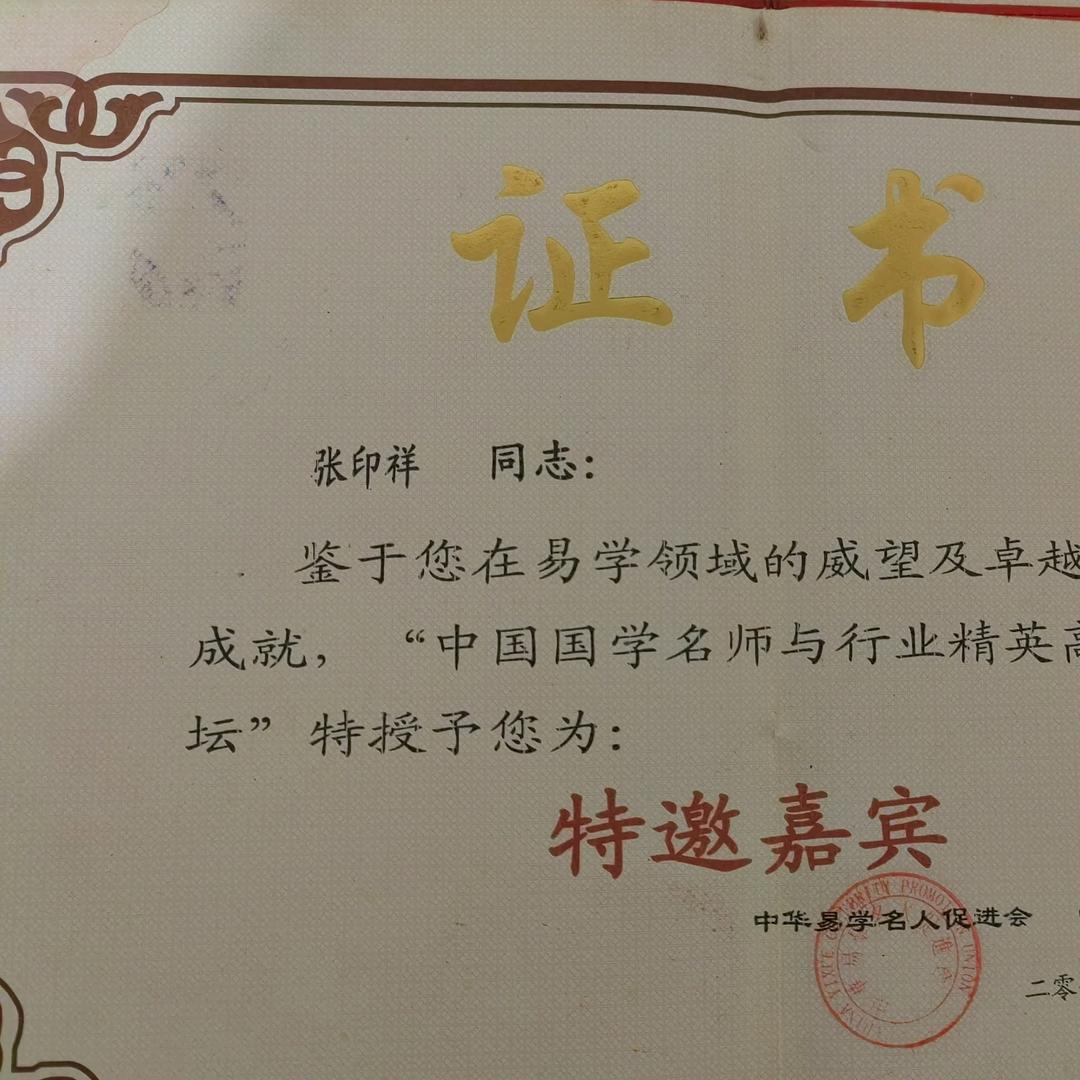 证书
张印祥 同志：
鉴于您在易学领域的威望及卓越
成就，“中国国学名师与行业精英高
坛”特授予您为：
特邀嘉宾
中华易学名人促进会
二零